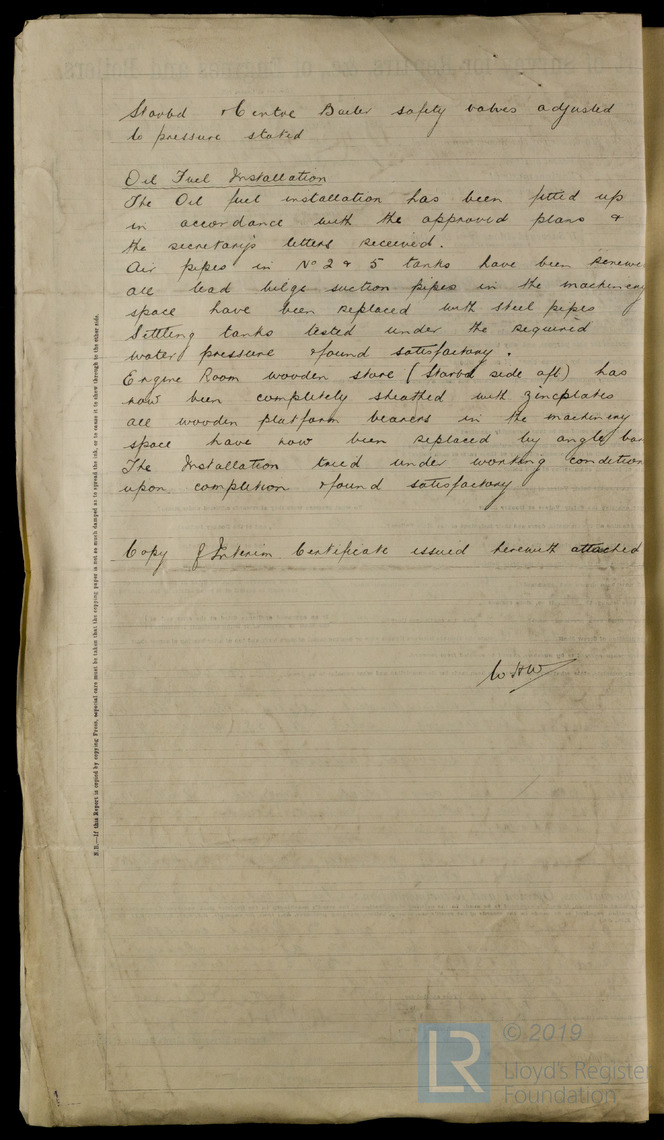 Starbd & Centre Boiler safety valves adjusted
to pressure stated
Oil Fuel Installation
The Oil fuel installation has been fitted up
in accordance with the approved plans &
the secretary's letters received.
Air pipes in No 2 & 5 tanks have been renewe
all lead bilge suction pipes in the machinery
space have been replaced with steel pipes
Settling tanks tested under the required
water pressure & found satisfactory.
Engine Room wooden store (Starbd side aft) has
now been completely sheathed with zincplates
all wooden platform bearers in the machinery
space have now been replaced by angle bar
The Installation tried under working condition
upon completion & found satisfactory
Copy of Interim Certificate issued herewith attached
WHW
N.B.—If this Report is copied by copying Press, especial care must be taken that the copying paper is not so much damped as to spread the ink, or to cause it to show through to the other side.
LR © 2019
Lloyd's Register
Foundation